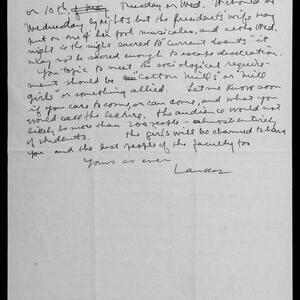 or 10th of Tuesday or Wed. It should be
Wednesday by rights but the president's wife may
put on one of her fool musicales, and as the Wed.
night is the night sacred to "current events" it
may be sacred enough to escape desecration.
You topic to meet the sociological require-
ment should be "cotton mills" or "mill
girls" or something allied. Let me know soon
if you care to come, or can come, and what you
would call the lecture. The audience would not
likely be more than 200 people - almost entirely
of students. The girls will be charmed to have
you and the best people of the faculty too
Yours as ever